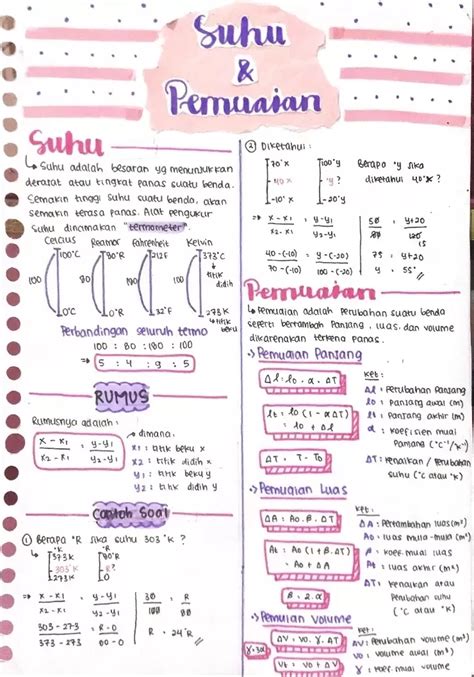 Suhu
&
Pemuaian
Suhu
↳ Suhu adalah besaran yg menunjukkan
derajat atau tingkat panas suatu benda.
Semakin tinggi suhu suatu benda, akan
semakin terasa panas. Alat pengukur
Suhu dinamakan "termometer".
Celcius Reamor Fahrenheit Kelvin
100°C 80°R 212F 373°C
↳ titik
didih
100 80 180 100
0°C 0°R 32°F 273K
↳ titik
beku
Perbandingan seluruh termo
100 : 80 : 180 : 100
⇒ 5 : 4 : 9 : 5
RUMUS
Rumusnya adalah :
x - x1 = y-y1
x2 - x1 y2-y1
→ dimana:
x1 : titik beku x
x2 : titik didih x
y1 : titik beku y
y2 : titik didih y
Contoh Soal
① Berapa °R jika suhu 303°K ?
°K °R
373K 80°R
303°K R?
273K 0
⇒ x - x1 = y - y1
x2 - x1 y2 - y1
303 - 273 = R-0
373 - 273 80-0
30 = R
100 80
R = 24°R
② Diketahui :
70°X 100°Y
40°X Y?
-10°X -20°Y
Berapa °Y jika
diketahui 40°X ?
⇒ x - x1 = y-y1
x2 - x1 y2-y1
40 - (-10) = y-(-20)
70 - (-10) 100-(-20)
50 = y+20
80 120
75 = y+20
y = 55°
Pemuaian
↳ Pemuaian adalah perubahan suatu benda
seperti bertambah panjang, luas, dan volume
dikarenakan terkena panas.
Pemuaian Panjang
Δl = lo . α . ΔT
lt = lo (1 - αΔT)
= lo + Δl
ΔT = T - To
ket:
Δl : Perubahan panjang
lo : panjang awal (m)
lt : panjang akhir (m)
α : koefisien muai
panjang (°C⁻¹/K⁻)
ΔT : kenaikan / Perubahan
suhu (°C atau °K)
Pemuaian Luas
ΔA = Ao . β . ΔT
At = Ao (1 + β . ΔT)
= Ao + ΔA
β = 2.α
ket:
ΔA : Pertambahan luas (m²)
Ao : luas mula-mula (m²)
β : koef. muai luas
At : luas akhir (m²)
ΔT : kenaikan atau
Perubahan suhu
(°C atau °K)
Pemuaian Volume
γ = 3α
ΔV = Vo . γ . ΔT
Vt = Vo + ΔV
ΔV : Perubahan volume (m³)
Vo : volume awal (m³)
γ : koef. muai volume